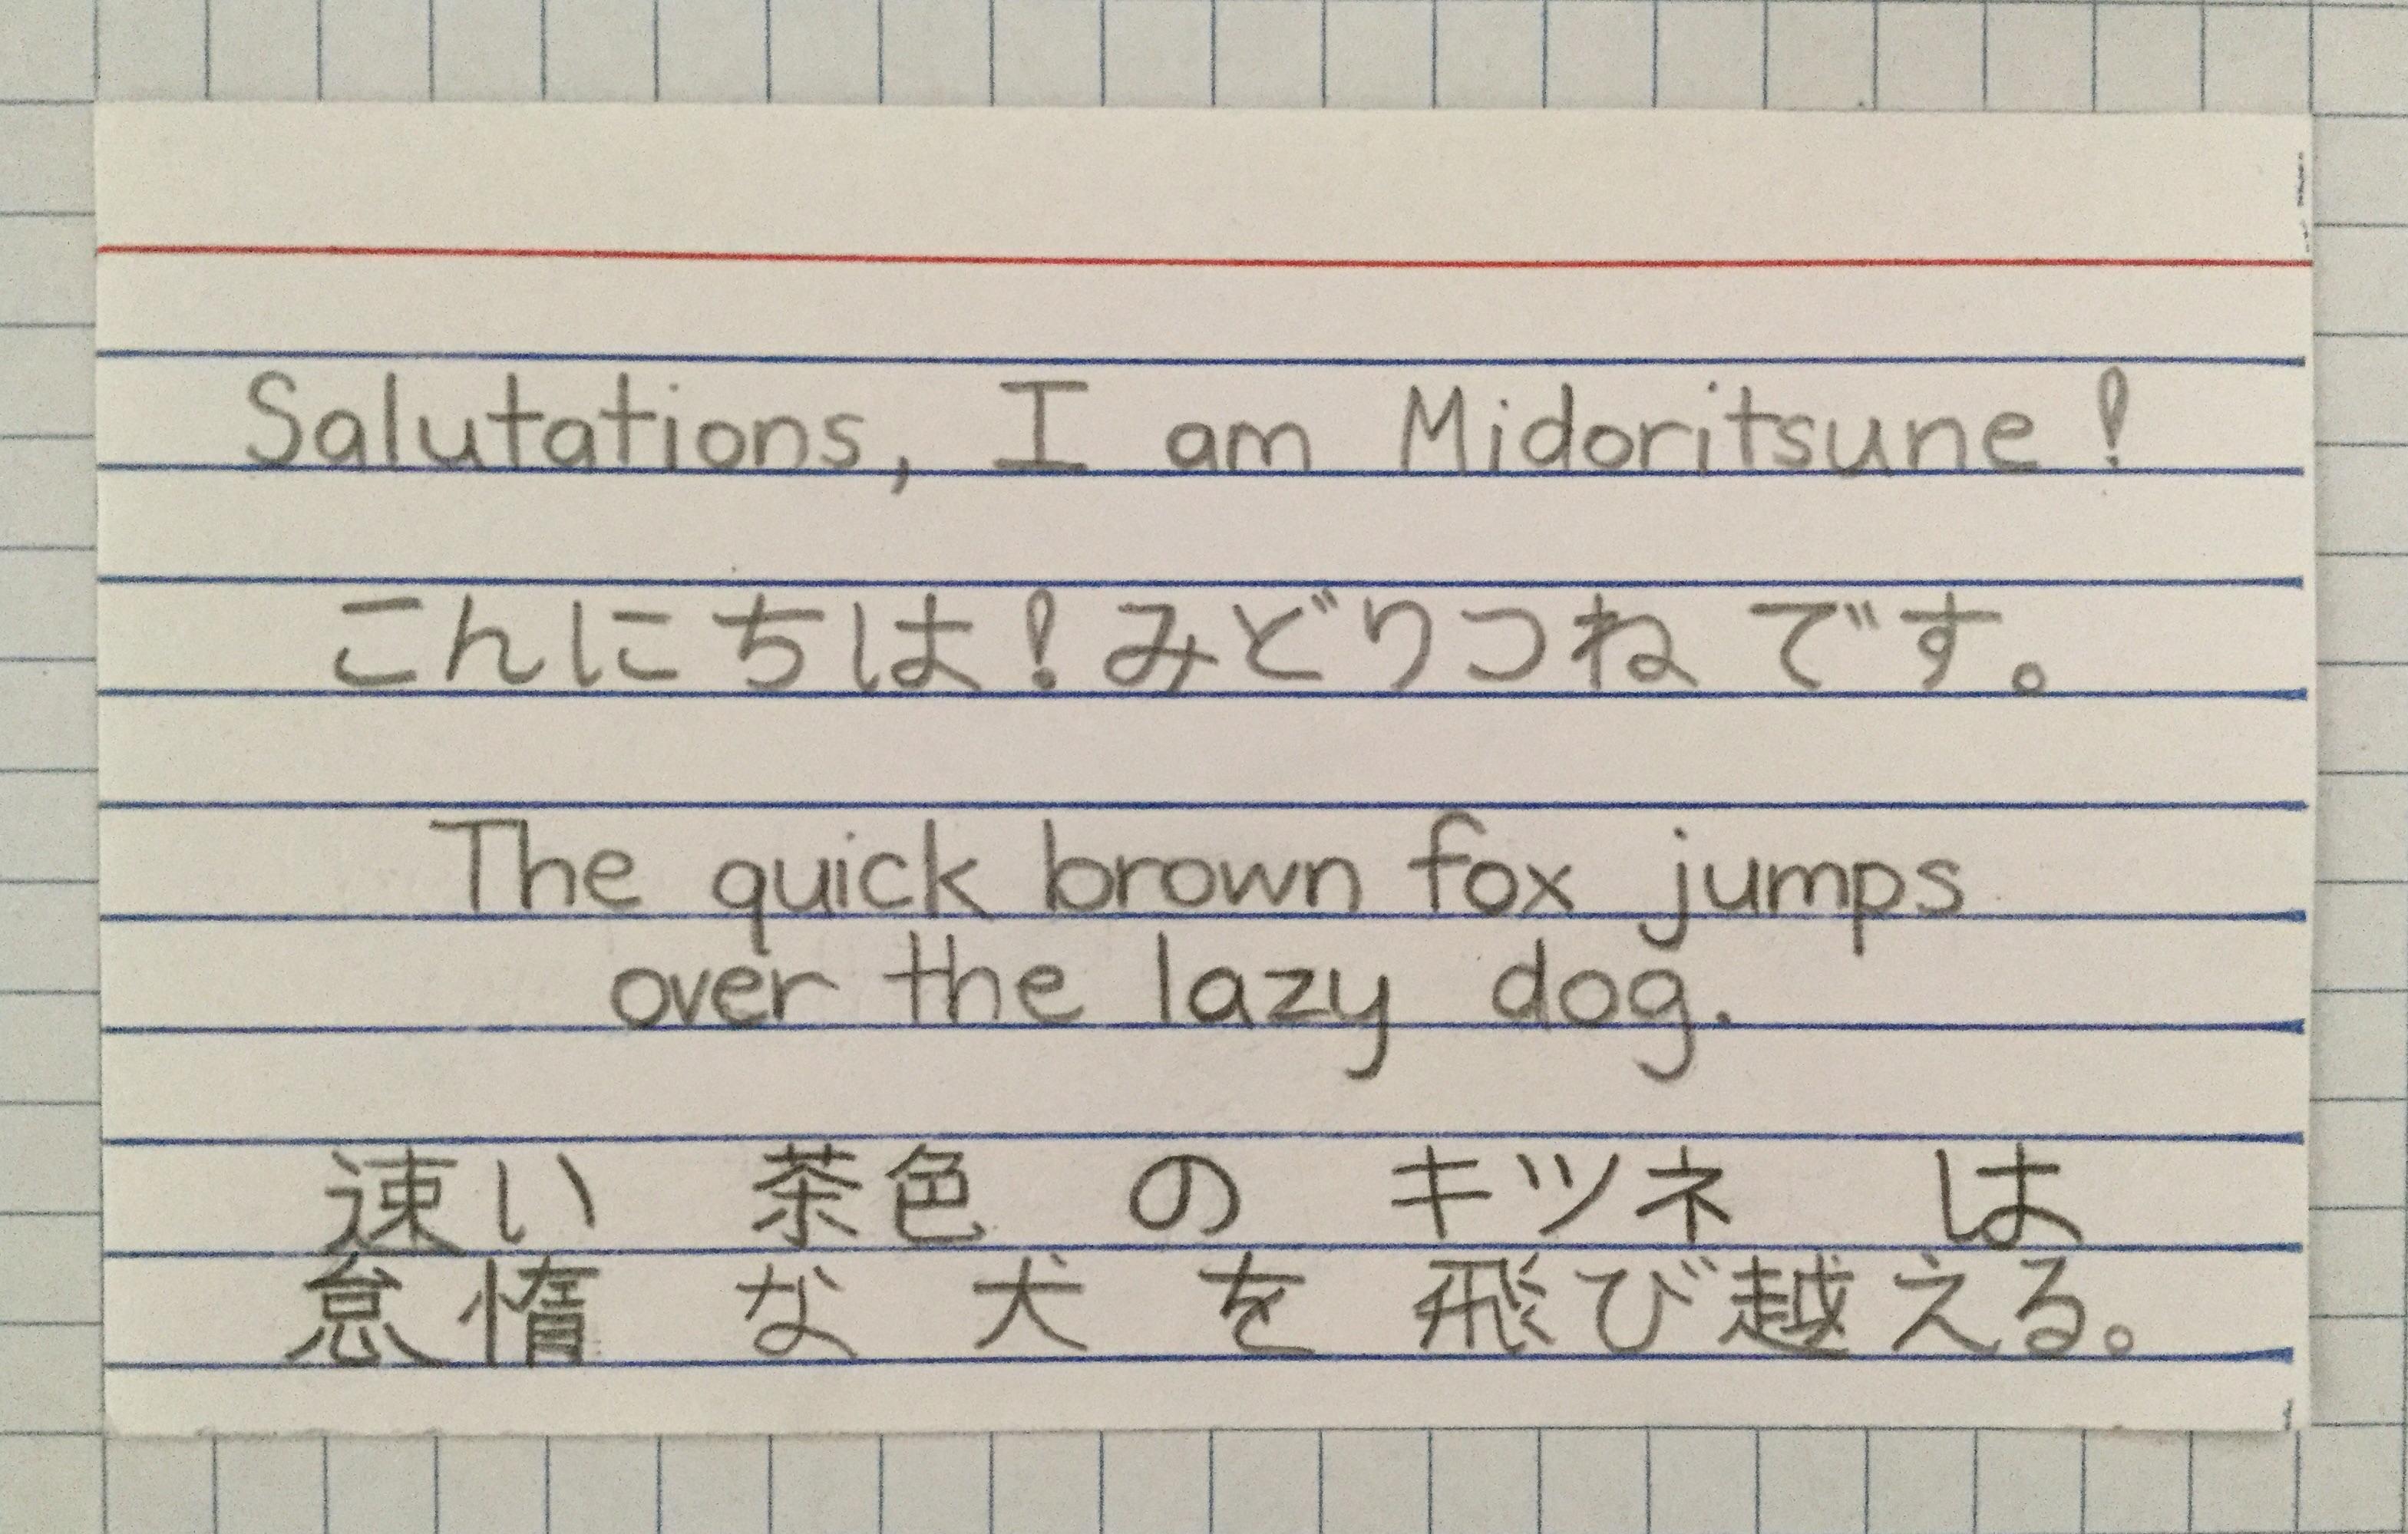 Salutations, I am Midoritsune!
こんにちは！みどりつねです。
The quick brown fox jumps
over the lazy dog.
速い 茶色 の キツネ は
怠惰 な 犬 を 飛び越える。